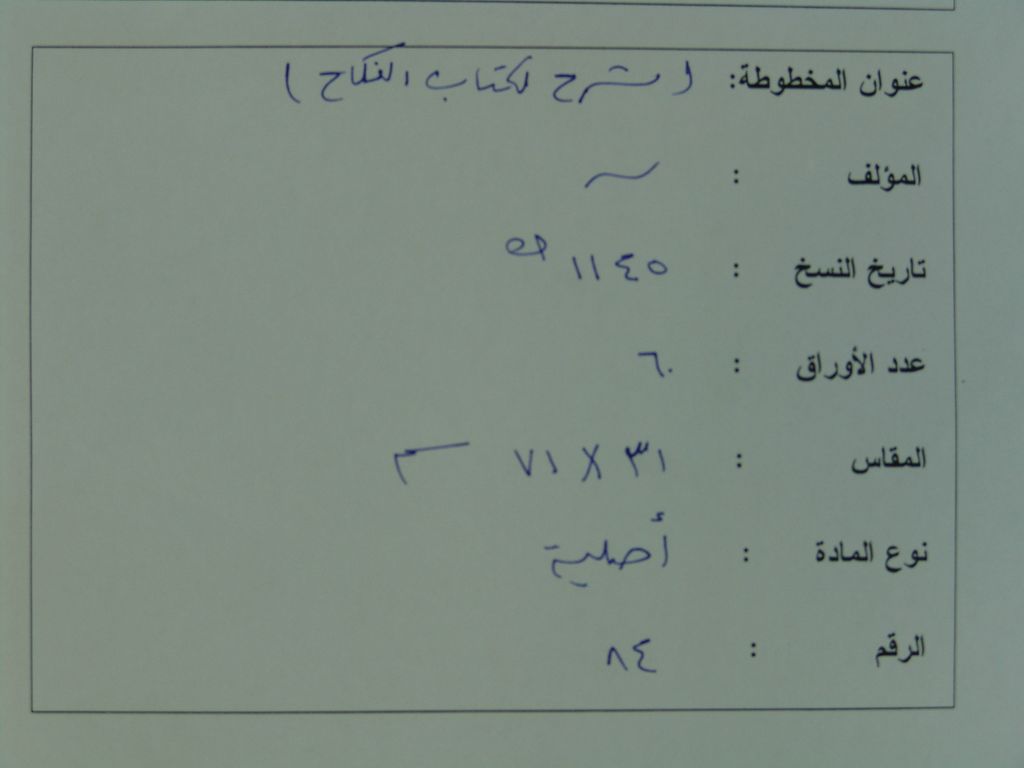 عنوان المخطوطة: (شرح لكتاب النكاح)
المؤلف : ~
تاريخ النسخ : ١١٤٥ هـ
عدد الأوراق : ٦٠
المقاس : ٣١ X ٧١ سم
نوع المادة : أصلية
الرقم : ٨٤